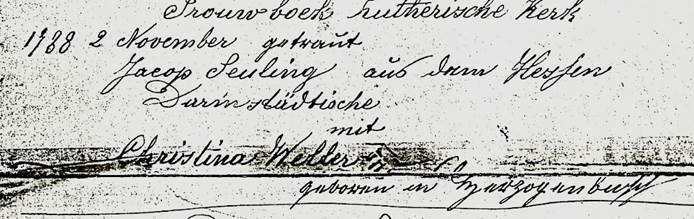 Trouwboek Lutherische Kerk
1788 2 November getraut
Jacop Seuling aus dem Hessen
Darmstädtische
mit
Christina Weller
geboren in Herzogenbusch